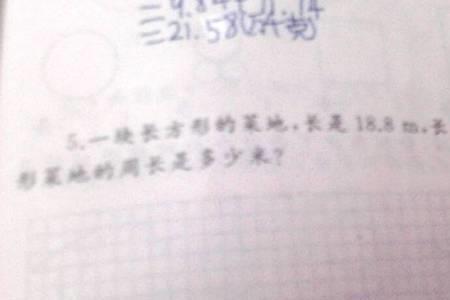 =9.84+11.74
=21.58(千克)
5.一块长方形的菜地,长是18.8 m,长
形菜地的周长是多少米?